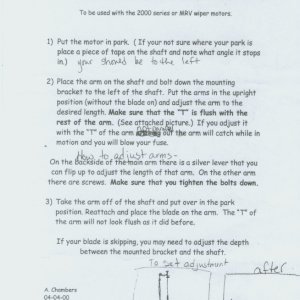 To be used with the 2000 series or MRV wiper motors.
1) Put the motor in park. ( If your not sure where your park is
place a piece of tape on the shaft and note what angle it stops
in.) your should be to the left
2) Place the arm on the shaft and bolt down the mounting
bracket to the left of the shaft. Put the arms in the upright
position (without the blade on) and adjust the arm to the
desired length. Make sure that the "T" is flush with the
rest of the arm. (See attached picture.) If you adjust it
with the "T" of the arm out the arm will catch while in
motion and you will blow your fuse.
How to adjust arms-
On the backside of the main arm there is a silver lever that you
can flip up to adjust the length of that arm. On the other arm
there are screws. Make sure that you tighten the bolts down.
3) Take the arm off of the shaft and put over in the park
position. Reattach and place the blade on the arm. The "T" of
the arm will not look flush as it did before.
If your blade is skipping, you may need to adjust the depth
between the mounted bracket and the shaft.
To set adjustment
after
A. Chambers
04-04-00